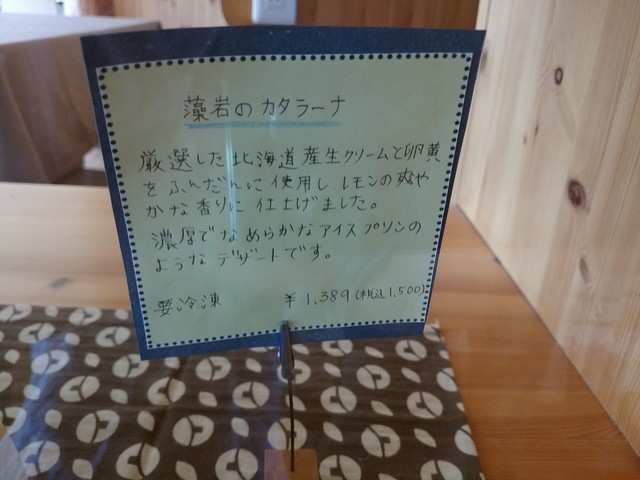 藻岩のカタラーナ
厳選した北海道産生クリームと卵黄
をふんだんに使用し、レモンの爽や
かな香りに仕上げました。
濃厚でなめらかなアイスプリンの
ようなデザートです。
要冷凍 ¥1,389(税込1,500)